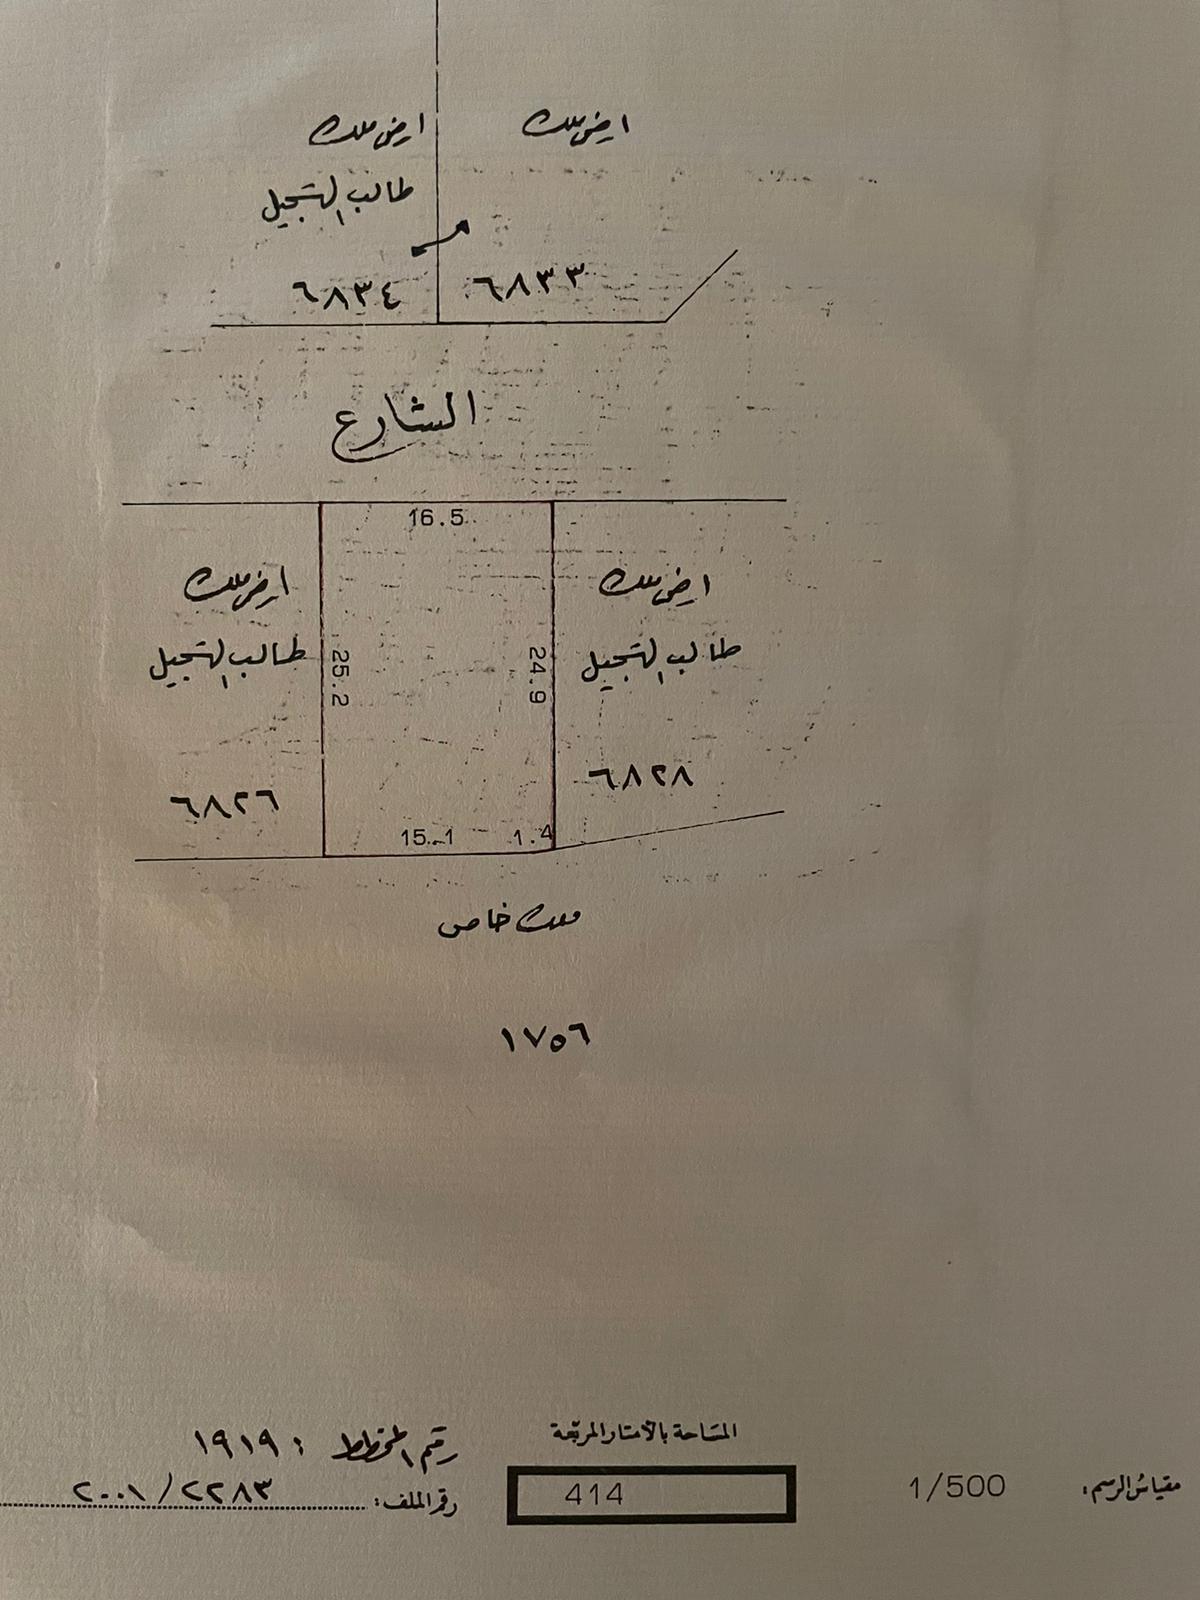 ارض ملك
ارض ملك
طالب التسجيل
٦٨٣٣
٦٨٣٤
الشارع
16.5
ارض ملك
ارض ملك
طالب التسجيل
طالب التسجيل
24.9
25.2
٦٨٢٨
٦٨٢٦
15.1
1.4
ملك خاص
١٧٥٦
المساحة بالأمتار المربعة
رقم المخطط : ١٩١٩
مقياس الرسم: 1/500
414
رقم الملف: ٢٢٨٣/٢٠٠١